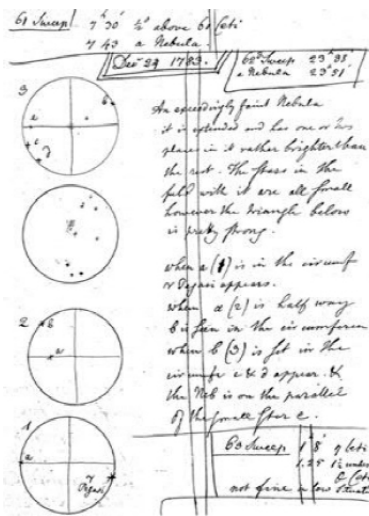 61 Sweep 7 30 ½° above 61 Ceti
7 43 a Nebula.
Decr 24 1783.
62d Sweep 23h 33'
a Nebula 23h 51'
3
b
a
c
d
An exceedingly faint Nebula
it is extended and has one or two
places in it rather brighter than
the rest. The stars in the
field with it are all small
however the triangle below
is pretty strong.
when a (1) is in the circumf
γ Pegasi appears.
when a (2) is half way
b is seen in the circumference
when b (3) is just in the
circumfe c & d appear. &
the Neb is on the parallel
of the small star c.
2
b
a
1
a
γ
Pegasi
63 Sweep 1h 8' η Ceti
1.25 1½ under
θ Ceti
not fine a low situat